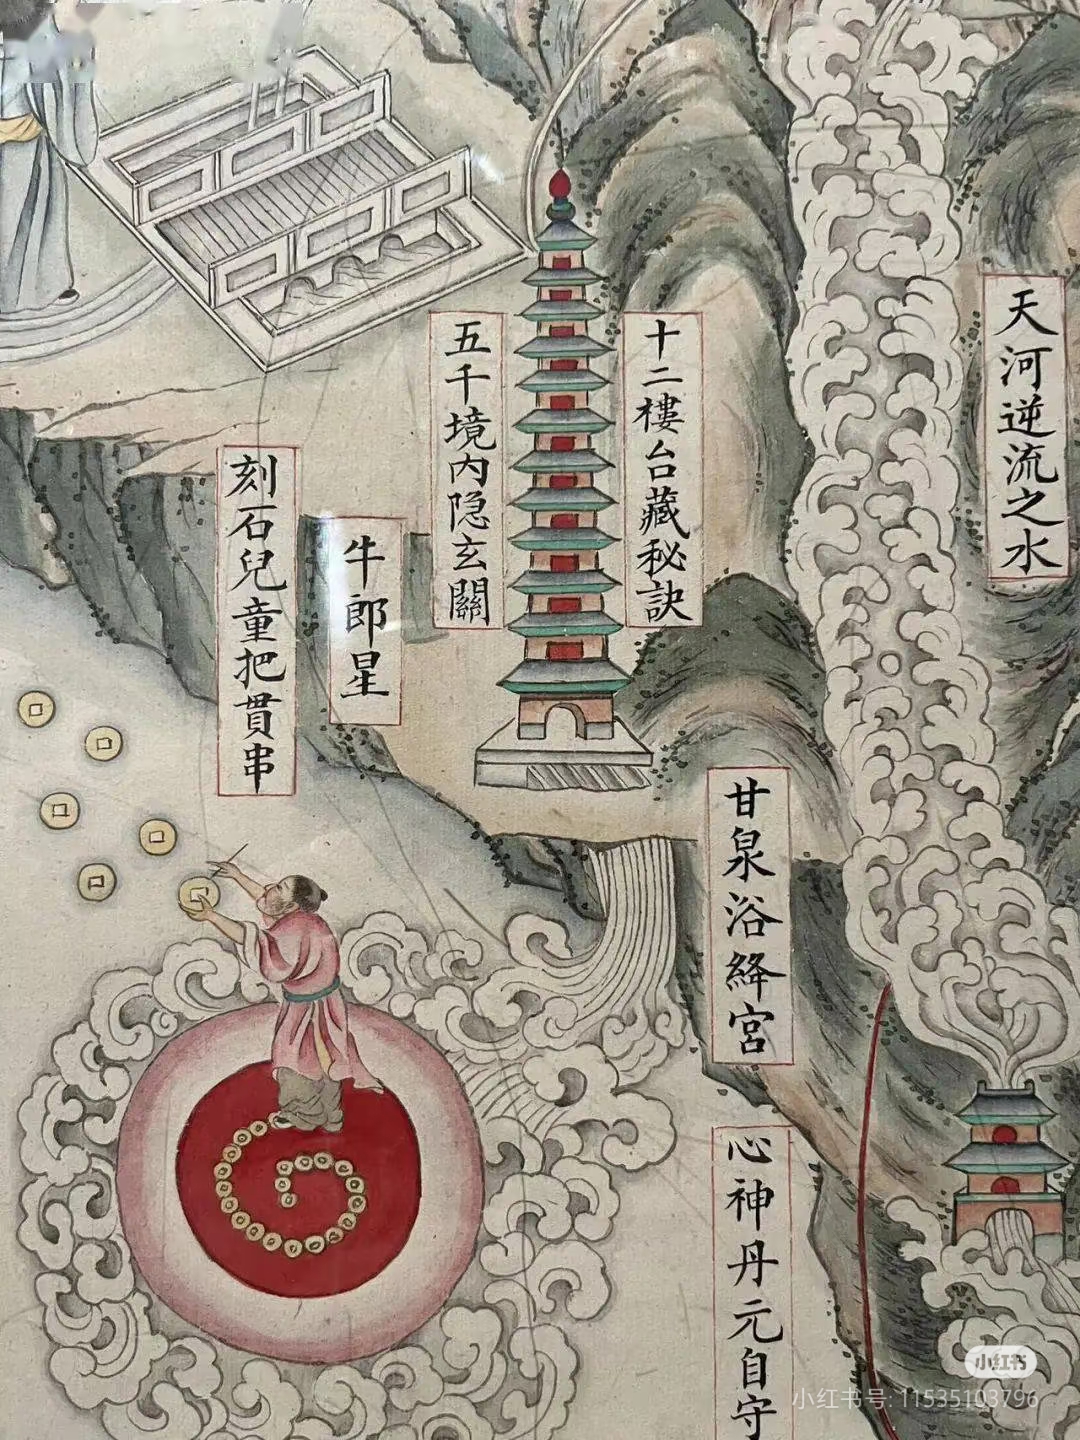 天河逆流之水
十二樓台藏秘訣
五千境内隐玄關
牛郎星
刻石兒童把貫串
甘泉浴絳宮
心神丹元自守
小红书
小红书号: 11535103796